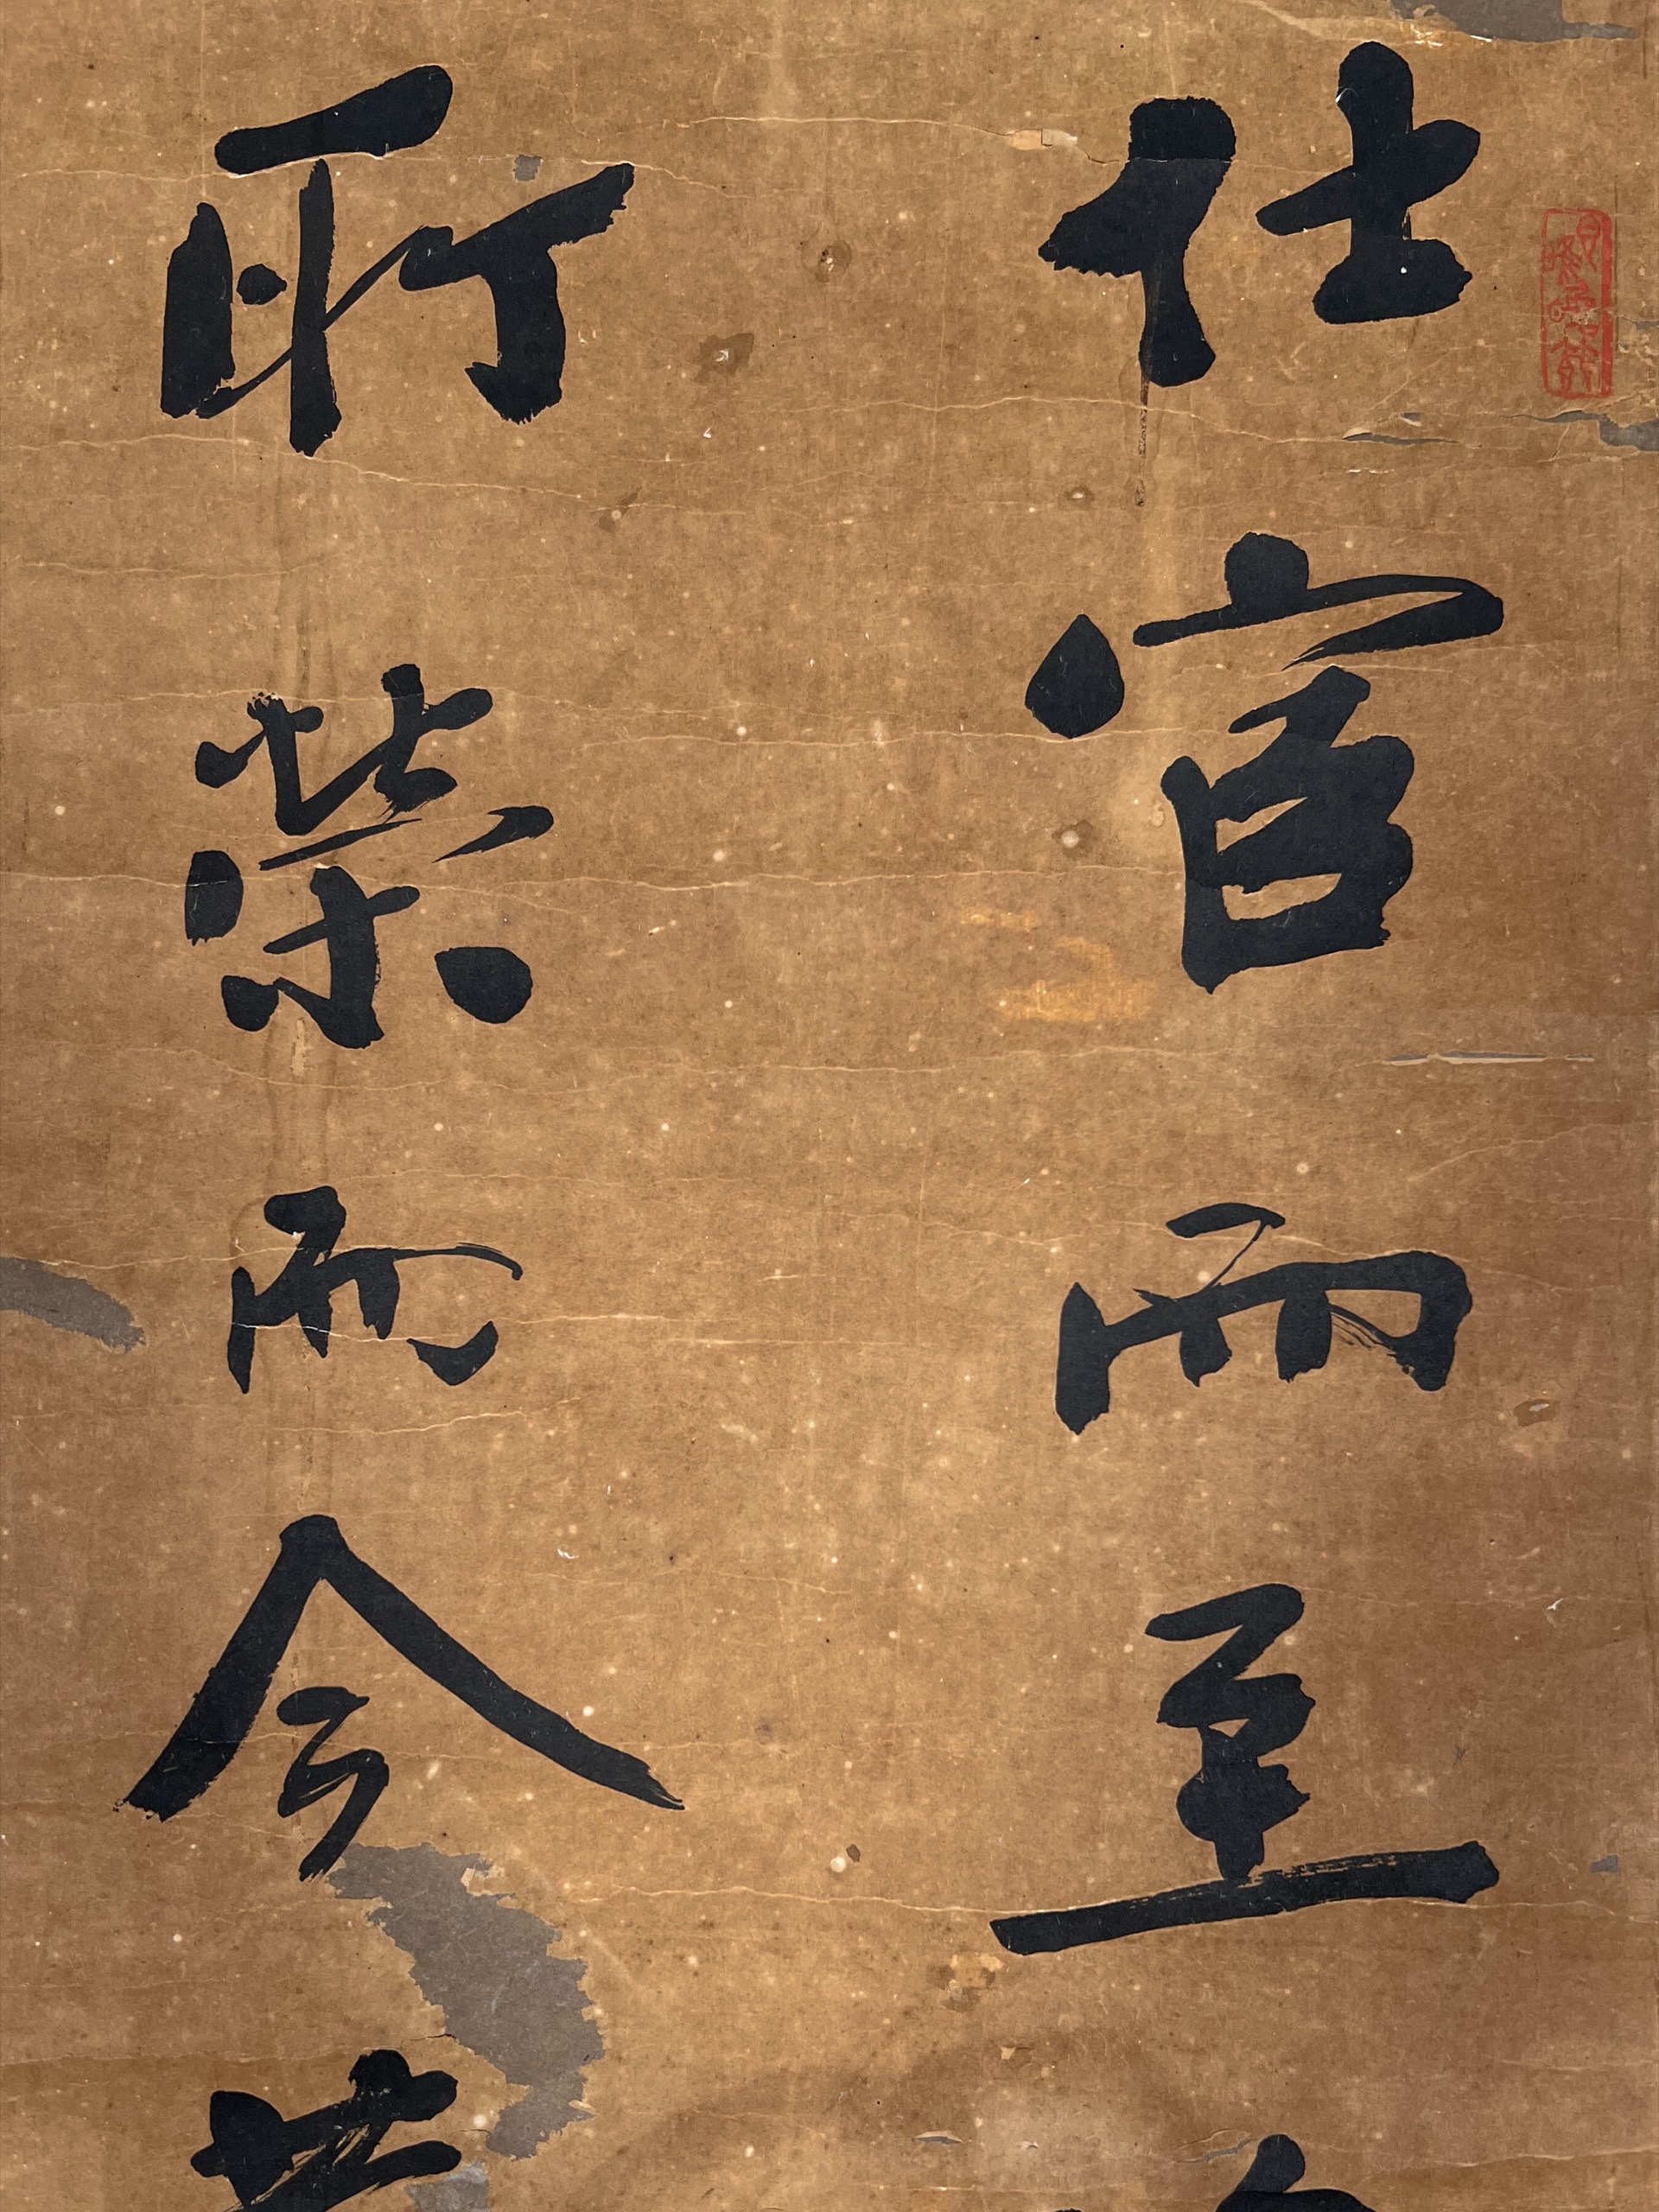 仕宦而至
所榮而今